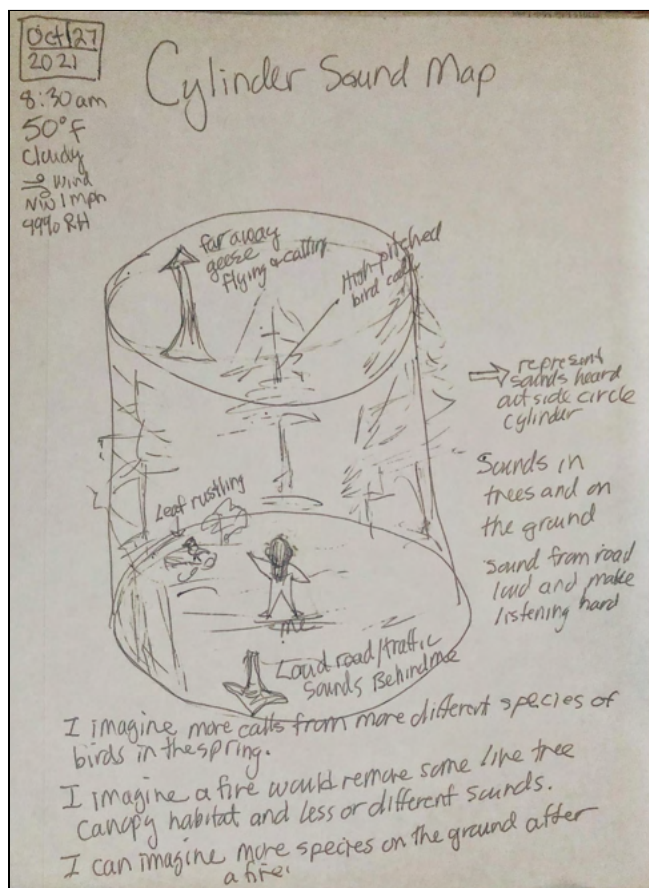 Oct 27
2021
8:30am
50°F
Cloudy
Wind
NW 1 mph
99% RH
Cylinder Sound Map
far away
geese
flying & calling
High-pitched
bird calls
⇨ represent
sounds heard
outside circle
cylinder
Sounds in
trees and on
the ground
Sound from road
loud and make
listening hard
Leaf rustling
me
Loud road/traffic
Sounds Behind me
I imagine more calls from more different species of
birds in the spring.
I imagine a fire would remove some live tree
canopy habitat and less or different sounds.
I can imagine more species on the ground after
a fire.